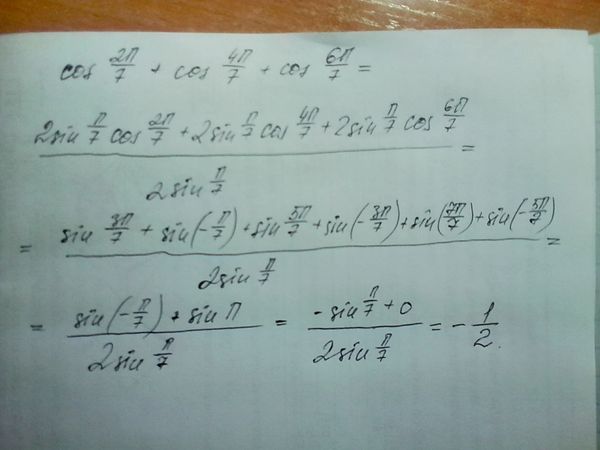 cos 2π/7 + cos 4π/7 + cos 6π/7 =
(2sin π/7 cos 2π/7 + 2sin π/7 cos 4π/7 + 2sin π/7 cos 6π/7) / (2sin π/7) =
= (sin 3π/7 + sin(-π/7) + sin 5π/7 + sin(-3π/7) + sin(7π/7) + sin(-5π/7)) / (2sin π/7) =
= (sin(-π/7) + sin π) / (2sin π/7) = (-sin π/7 + 0) / (2sin π/7) = -1/2.